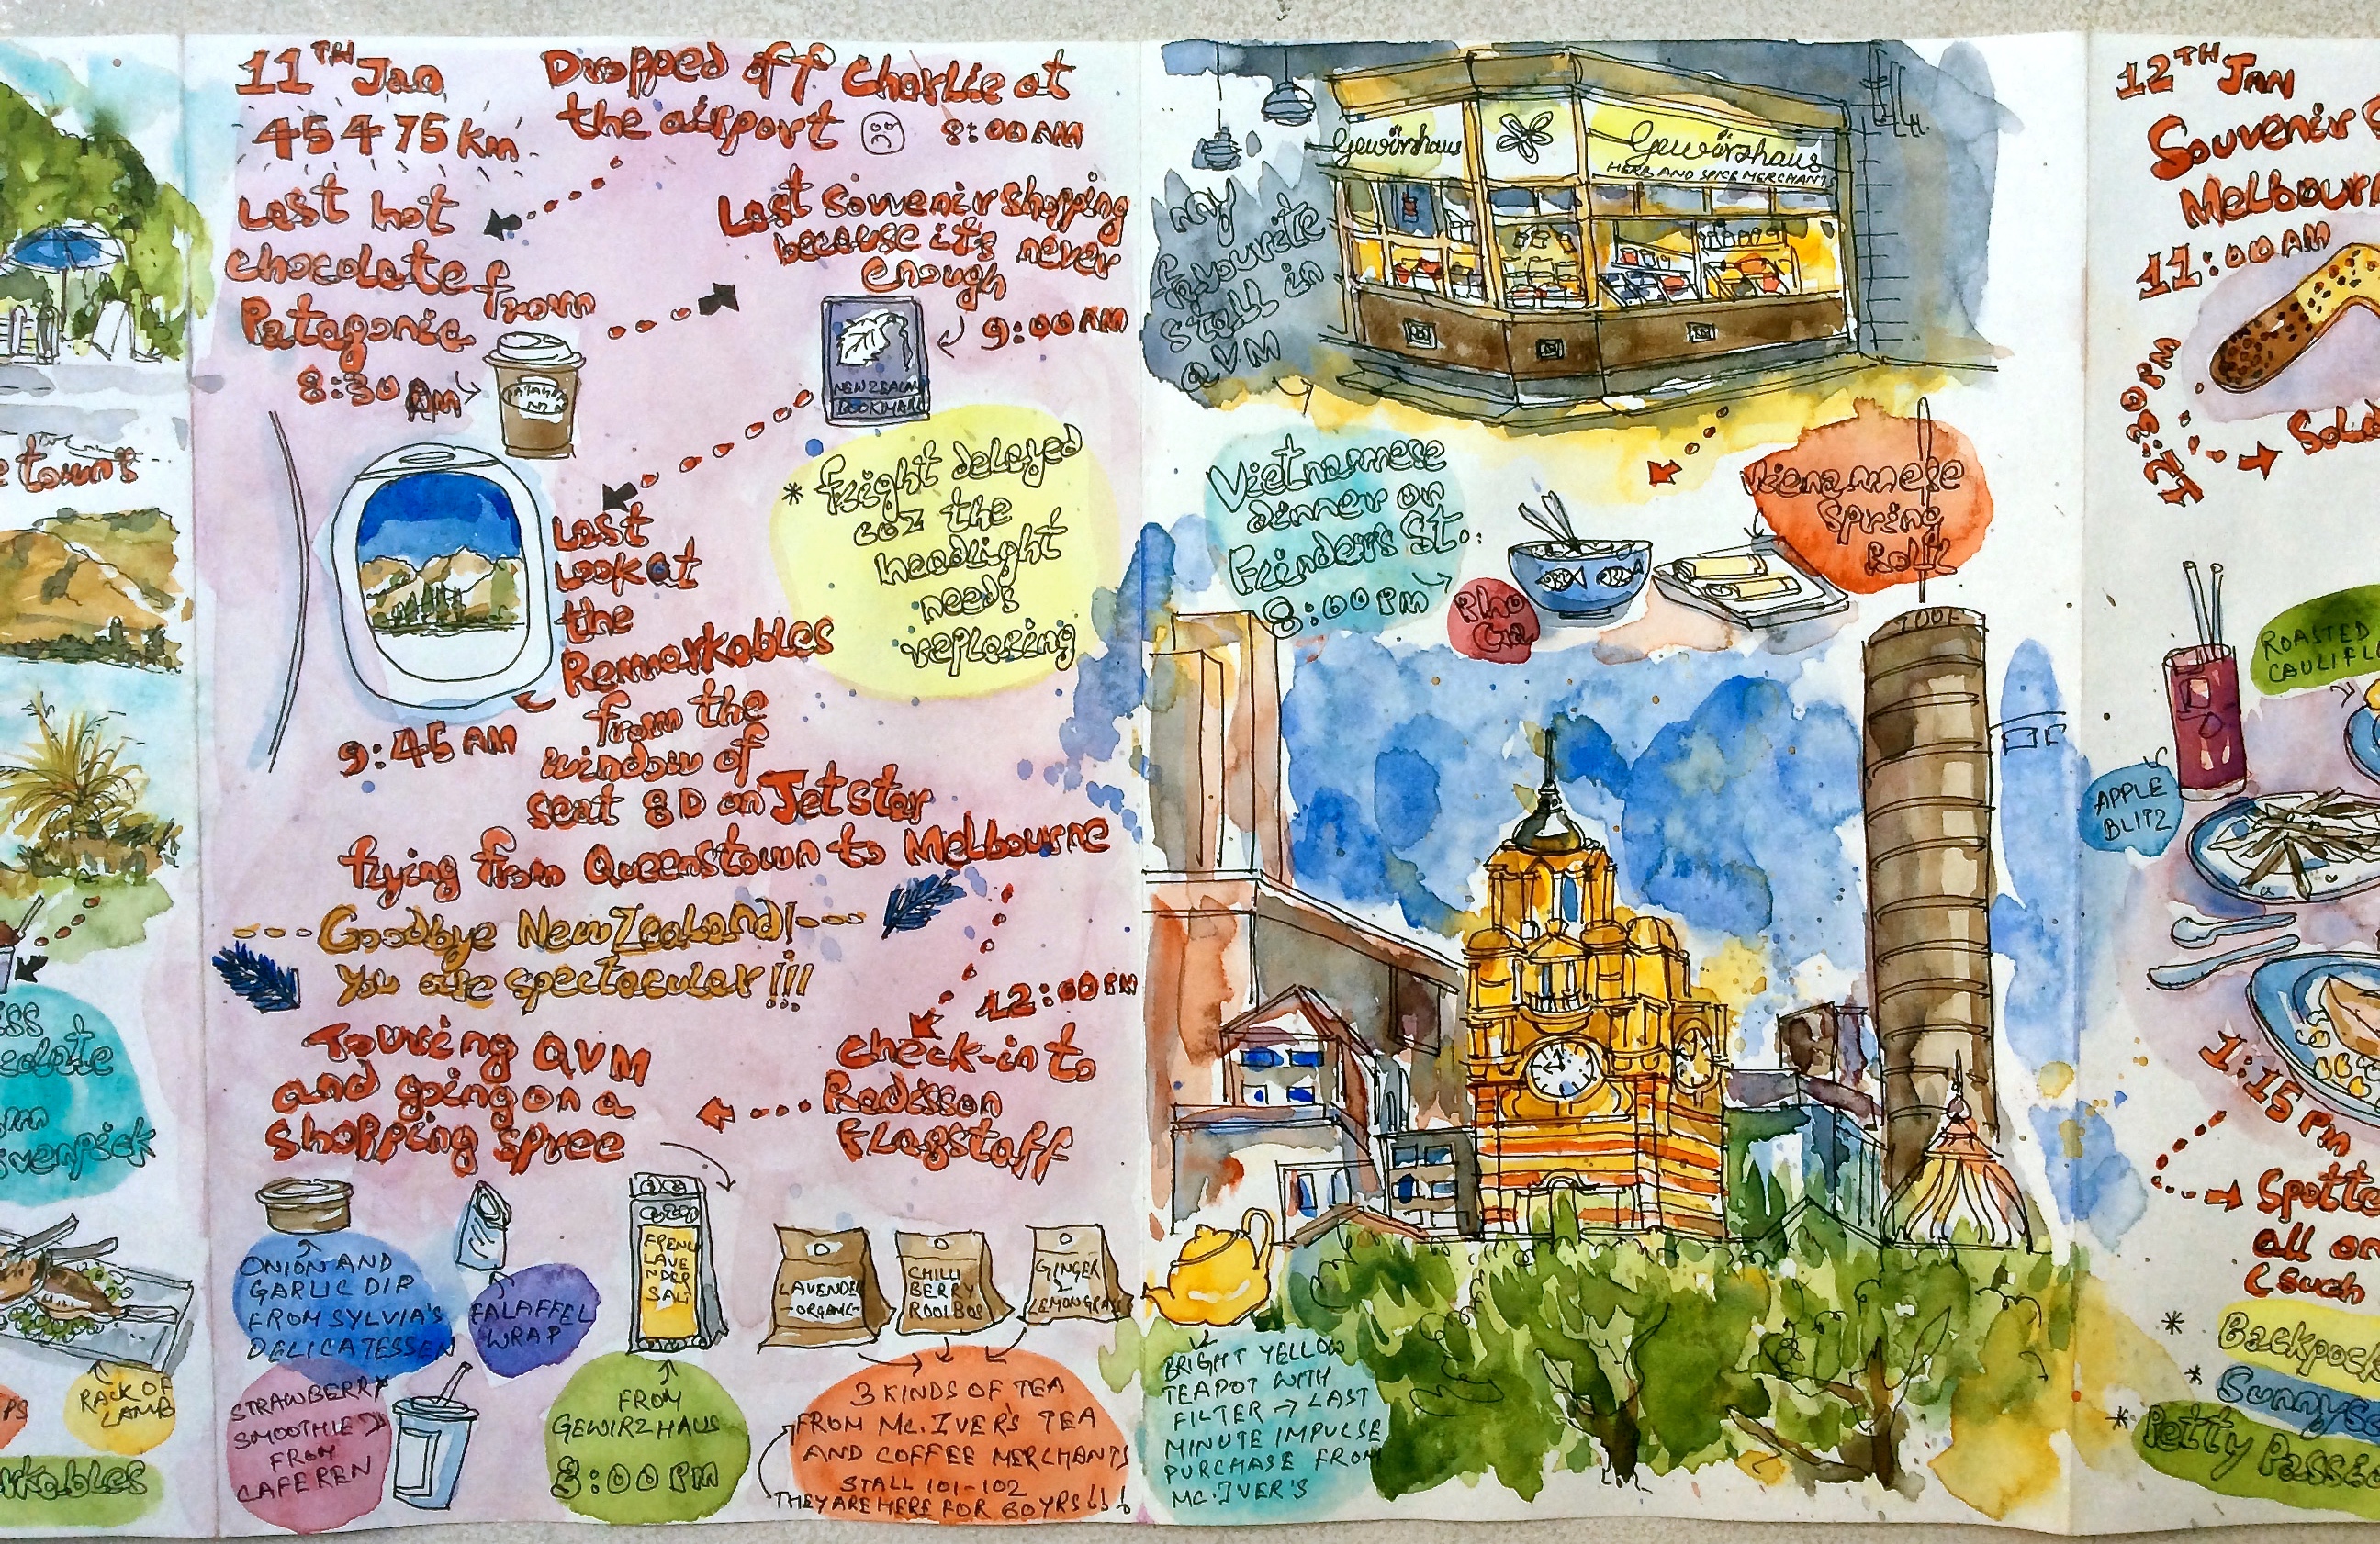 e town's
ss
colate
m
venpick
PS
RACK OF
LAMB
rkables
11TH Jan
45475 km
Dropped off Charlie at
the airport 8:00 AM
Last hot
chocolate from
Patagonia
8:30 AM
PATAGONIA
Last souvenir shopping
because it's never
enough
9:00 AM
NEW ZEALAND
BOOKMARK
Last
Look at
the
Remarkables
from the
window of
seat 8D on Jetstar
flying from Queenstown to Melbourne
9:45 AM
* flight delayed
coz the
headlight
needs
replacing
--- Goodbye New Zealand! ---
You are spectacular!!!
12:00 PM
Check-in to
Radisson
Flagstaff
Touring QVM
and going on a
shopping spree
ONION AND
GARLIC DIP
FROM SYLVIA'S
DELICATESSEN
FALAFFEL
WRAP
STRAWBERRY
SMOOTHIE
FROM
CAFE REN
FRENCH
LAVE
NDER
SALT
FROM
GEWIRZHAUS
3:00 PM
LAVENDER
-ORGANIC-
CHILLI
BERRY
ROOIBOS
GINGER
LEMONGRASS
3 KINDS OF TEA
FROM Mc.IVER'S TEA
AND COFFEE MERCHANTS
STALL 101-102
THEY ARE HERE FOR 60 YRS!!!
My
favourite
stall in
QVM
Gewürzhaus
Gewürzhaus
HERB AND SPICE MERCHANTS
Vietnamese
dinner on
Flinders St.
8:00 PM
Pho
Ga
Vienamese
Spring
Roll
BRIGHT YELLOW
TEAPOT WITH
FILTER → LAST
MINUTE IMPULSE
PURCHASE FROM
MC.IVER'S
12TH JAN
Souvenir S
Melbourn
11:00 AM
12:30 PM
Sola
ROASTED
CAULIFL
APPLE
BLITZ
1:15 PM
Spotte
all on
(such
* Backpock
* Sunnys
* Petty Passe